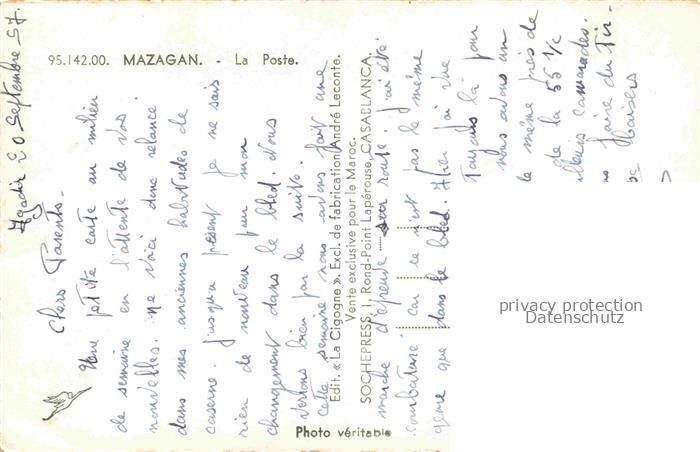 95.142.00. MAZAGAN. - La Poste.
Agadir 20 Septembre 57.
Chers Parents.
Une petite carte au milieu
de semaine en l'attente de vos
nouvelles. me voici donc relancé
dans mes anciennes habitudes de
caserne. jusqu'à présent je ne sais
rien de nouveau pour mon
changement dans le bled. Nous
verrons bien par la suite.
cette semaine nous avons fait une
marche d'épreuve sur route. j'ai été
combature car ce n'est pas le même
genre que dans le bled. Hier j'ai vue
Toujours là pour
nous avons un
le même près de
de la 55 1/2
camarades.
faire du Tir
baisers
Edit. « La Cigogne ». Excl. de fabrication André Leconte.
Vente exclusive pour le Maroc.
SOCHEPRESS, 1, Rond-Point Lapérouse, CASABLANCA.
Photo véritable
privacy protection
Datenschutz